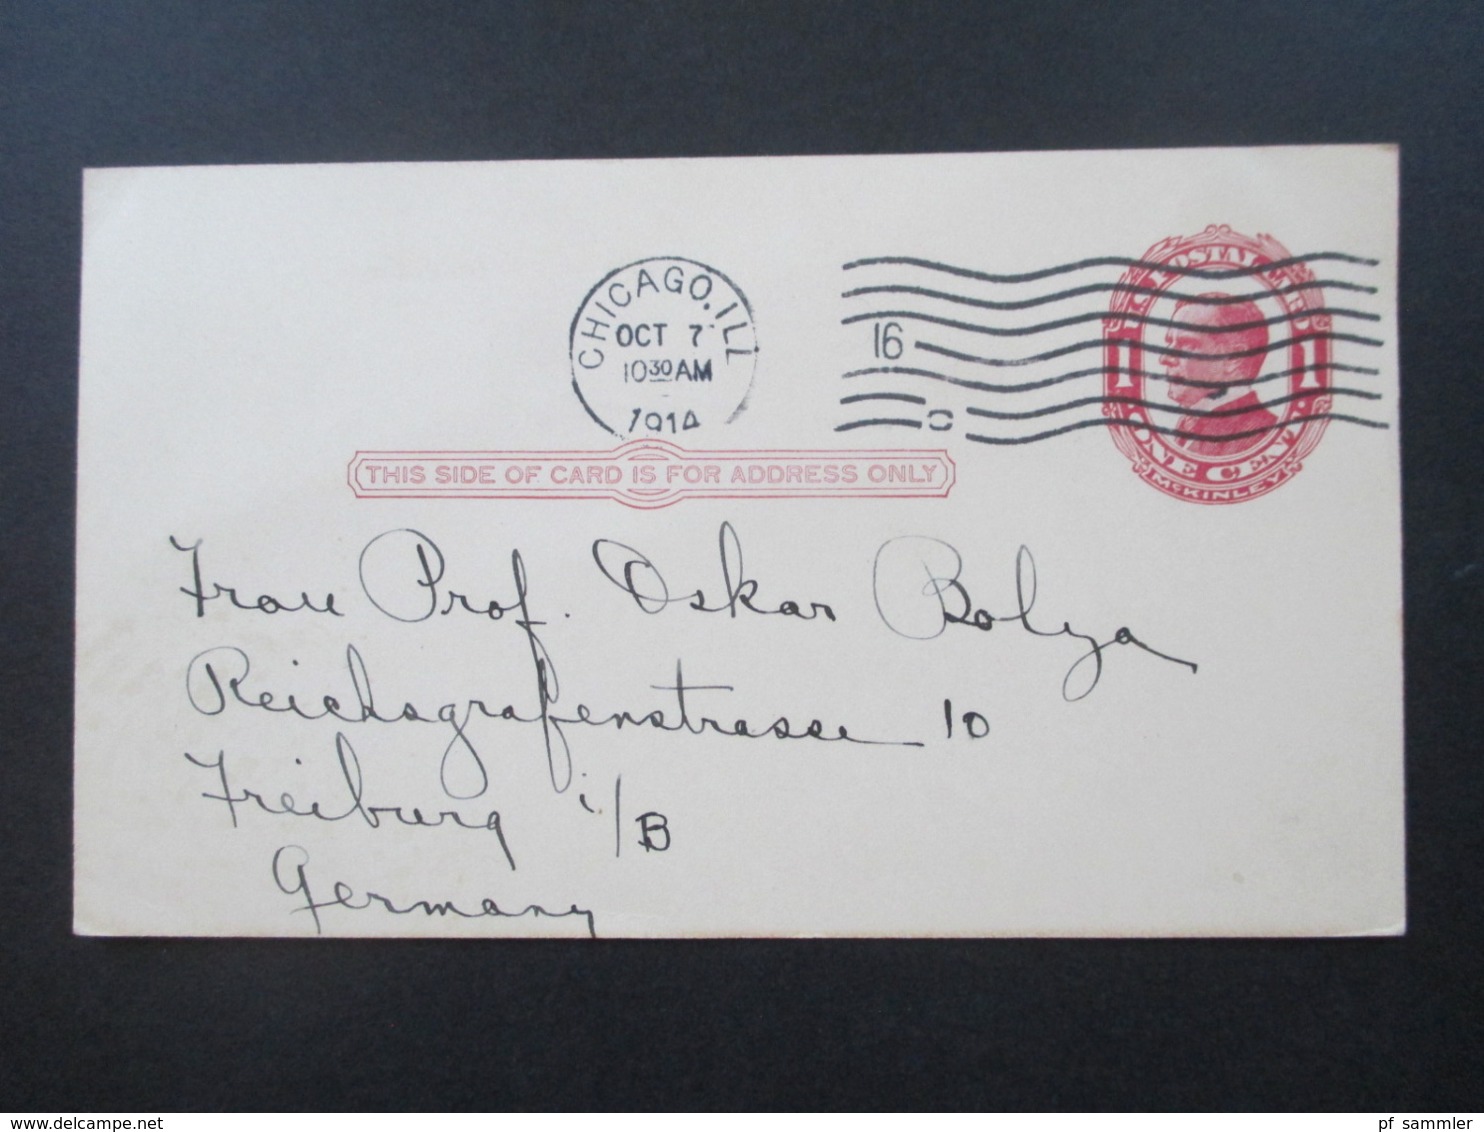 CHICAGO, ILL
OCT 7
10 30 AM
1914
16
POSTAL CARD
1 1
ONE CENT
McKINLEY
THIS SIDE OF CARD IS FOR ADDRESS ONLY
Frau Prof. Oskar Bolya
Reichsgrafenstrasse 10
Freiburg i/B
Germany
delcampe.net
pf_sammler